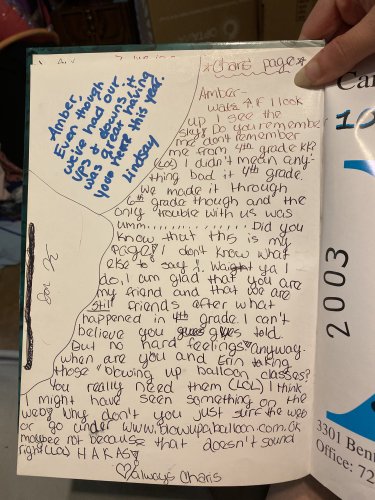 *Charis' page*
Amber,
Even though
we've had our
ups & downs it
was great having
you here this year.
Lindsay
Amber-
up I see the
sky? Do you remember
me don't remember
me from 4th grade
(LOL) I didn't mean any-
thing bad if 4th grade.
We made it through
6th grade though and the
only trouble with us was
umm.............. Did you
know that this is my
page? I don't know what
else to say! Wait ya I
do, I am glad that you are
my friend and that we are
still friends after what
happened in 4th grade. I can't
believe you guys told.
But no hard feelings anyway.
when are you and Erin taking
those "blowing up balloon classes?
You really need them (LOL) I think
I might have seen something on the
web? Why don't you just surf the web
or go under www.blowupaballoon.com. Ok
maybee not because that doesn't sound
right (LOL) HAKAS
♡always Charis
Ca
10
2003
3301 Bent
Office: 72